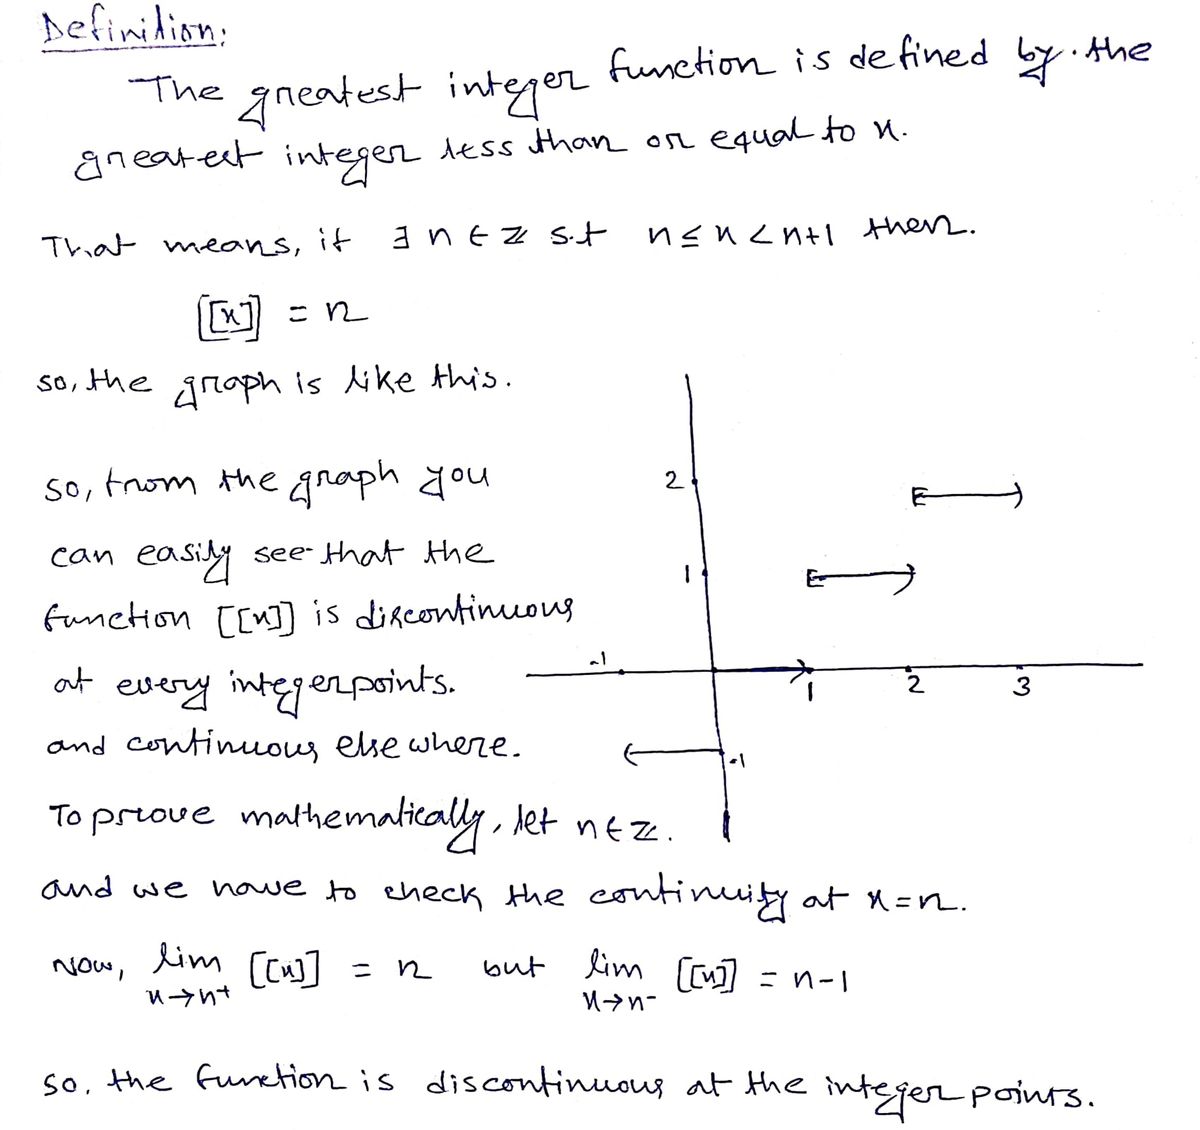 Definition:
The greatest integer function is defined by the
greatest integer less than or equal to x.
That means, if ∃ n ∈ ℤ s.t n ≤ x < n+1 then.
[[x]] = n
so, the graph is like this.
so, from the graph you
can easily see that the
function [[x]] is discontinuous
at every integer points.
and continuous elsewhere.
2
1
-1
1
2
3
-1
To prove mathematically, let n ∈ ℤ.
and we have to check the continuity at x = n.
Now, lim [[x]] = n but lim [[x]] = n-1
x→n+ x→n-
So, the function is discontinuous at the integer points.